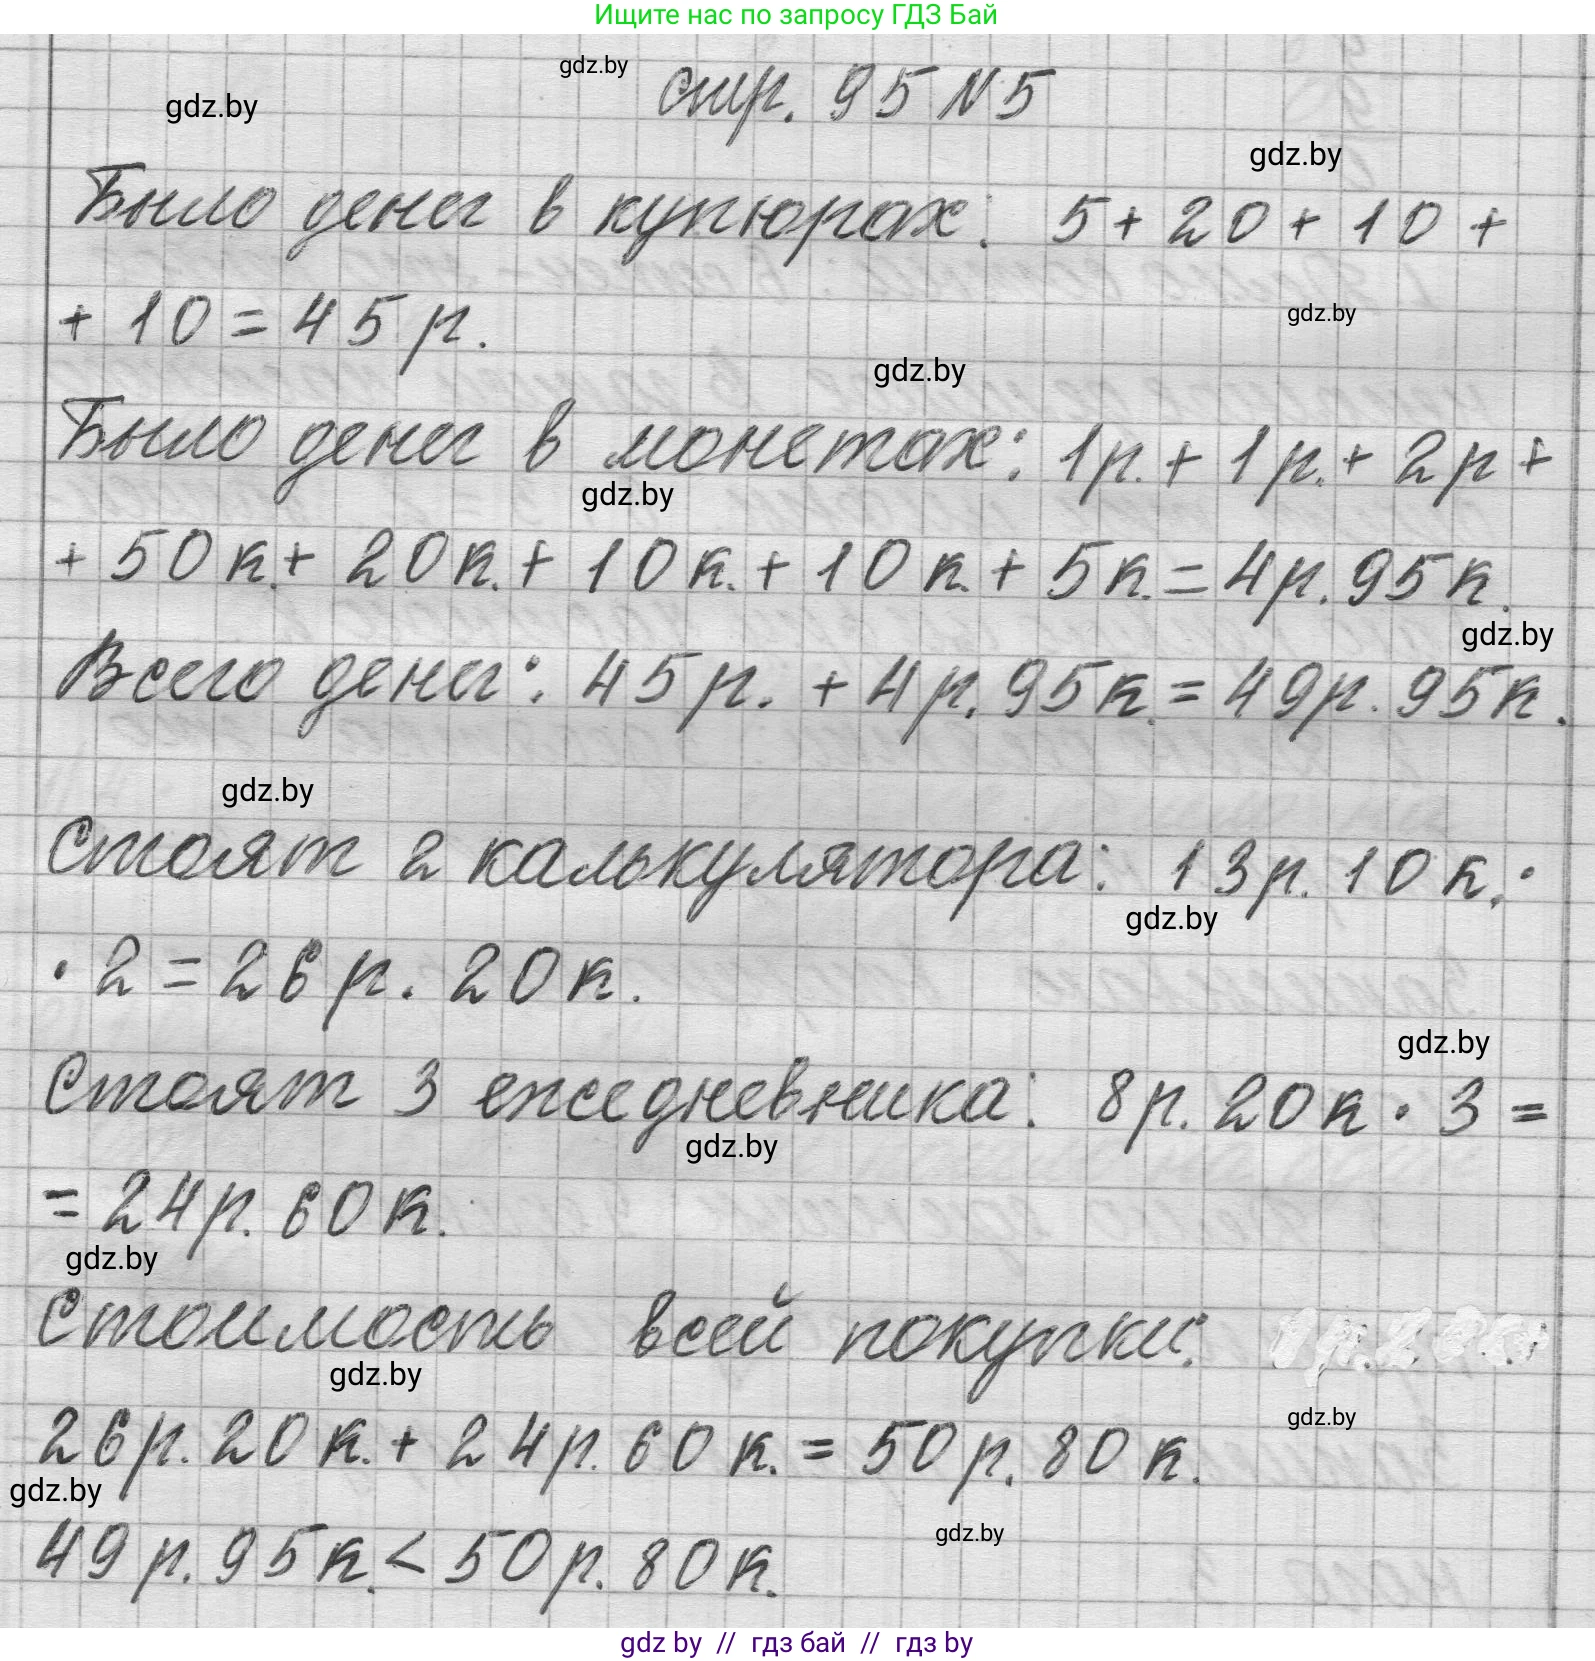 Ищите нас по запросу ГДЗ Бай
gdz.by
стр. 95 N 5
gdz.by
gdz.by
Было денег в купюрах: 5 + 20 + 10 +
+ 10 = 45 р.
gdz.by
gdz.by
Было денег в монетах: 1р. + 1р. + 2р +
gdz.by
+ 50к. + 20к. + 10к. + 10к. + 5к. = 4р. 95к.
gdz.by
Всего денег: 45р. + 4р. 95к. = 49р. 95к.
gdz.by
Стоят 2 калькулятора: 13р. 10к. ·
gdz.by
· 2 = 26р. 20к.
gdz.by
Стоят 3 ежедневника: 8р. 20к · 3 =
gdz.by
= 24р. 60к.
gdz.by
Стоимость всей покупки:
gdz.by
gdz.by
26р. 20к. + 24р. 60к. = 50р. 80к.
gdz.by
gdz.by
49р. 95к. < 50р. 80к.
gdz by // гдз бай // гдз by